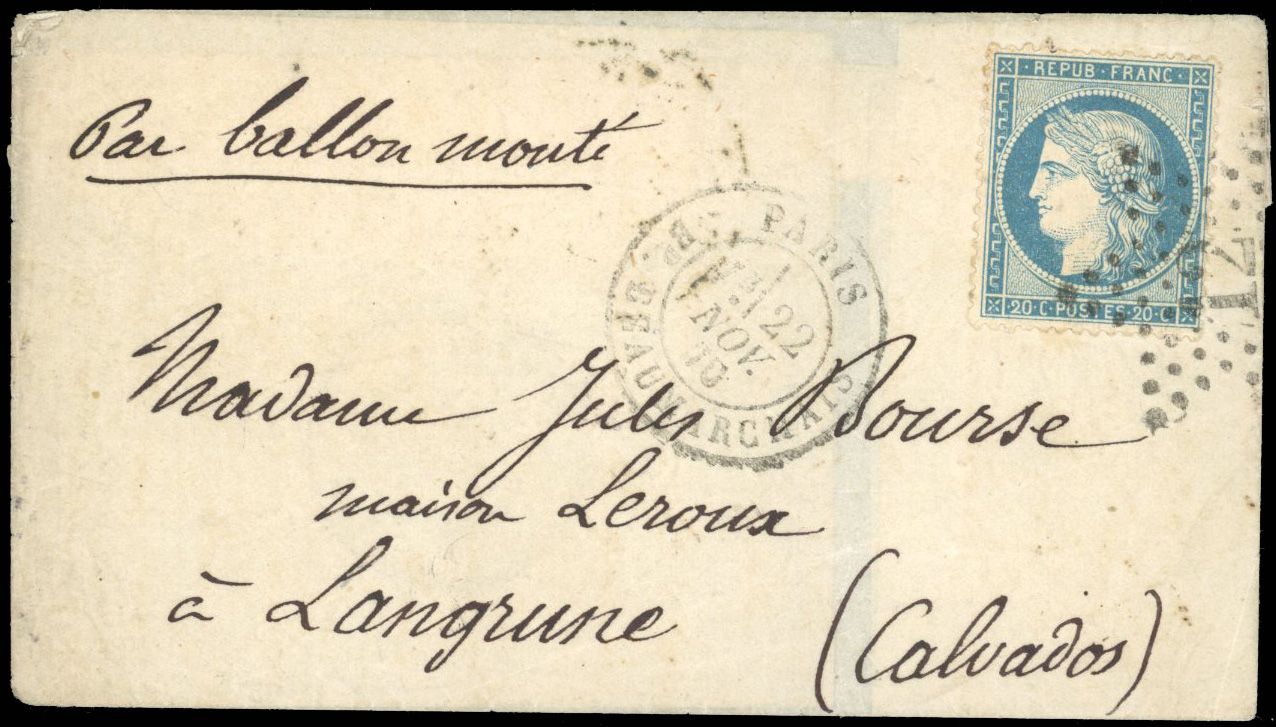 Par ballon monté
REPUB · FRANC
20 · C · POSTES · 20 · C
PARIS
22
NOV.
70
BD. BEAUMARCHAIS
Madame Jules Bourse
maison Leroux
à Langrune
(Calvados)